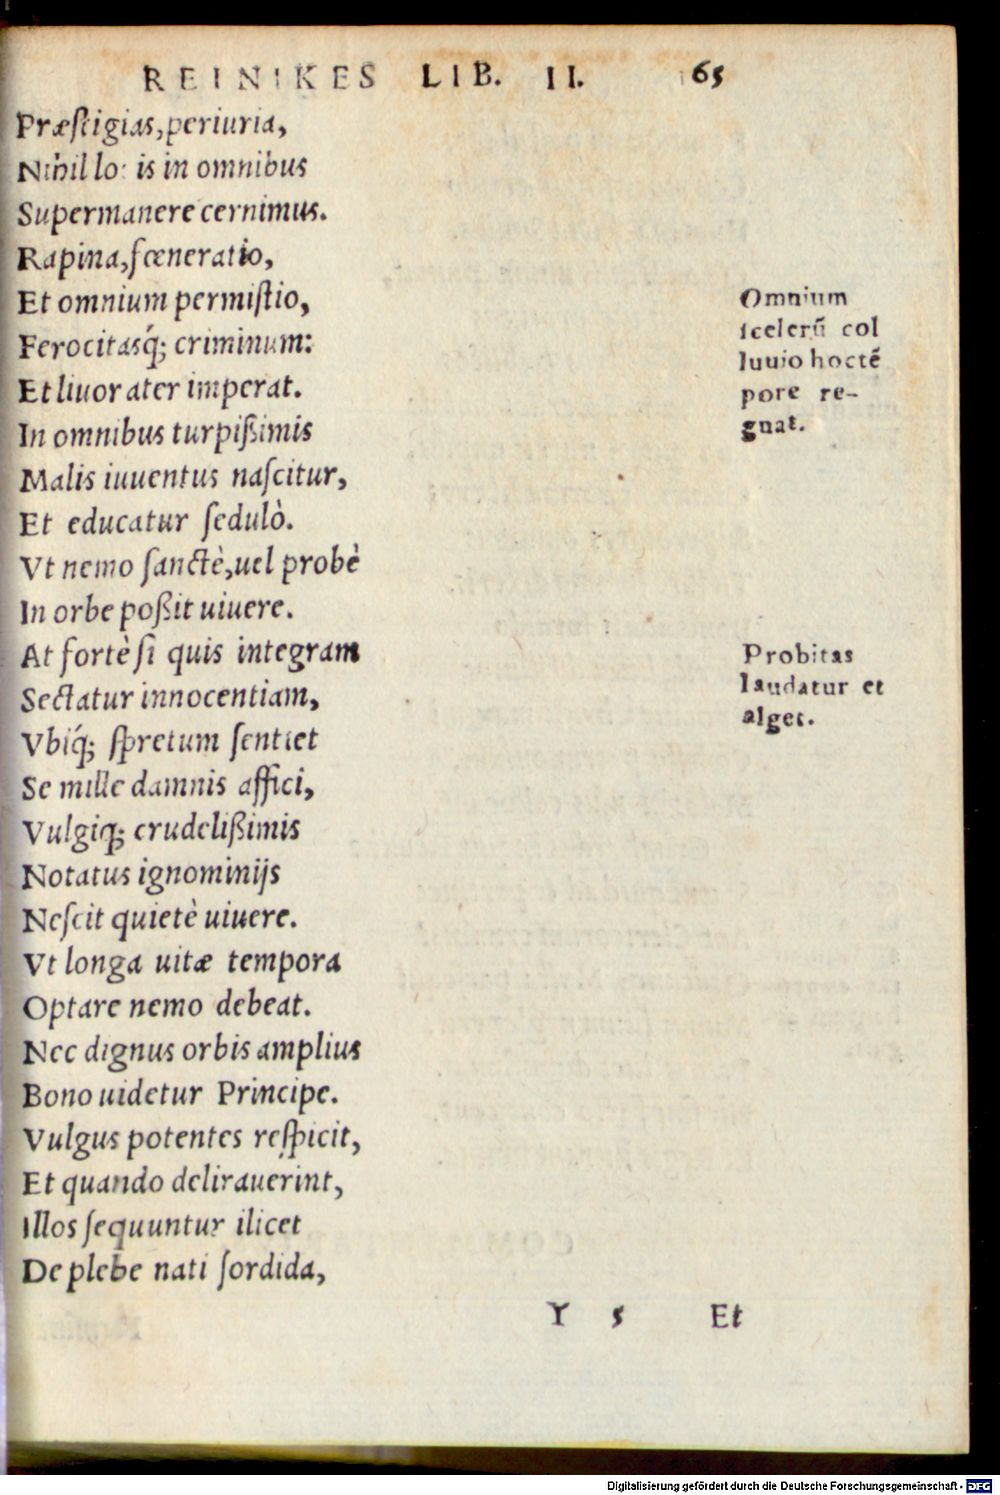 REINIKES LIB. II. 65
Præstigias, periuria,
Nihil lo: is in omnibus
Supermanere cernimus.
Rapina, fœneratio,
Et omnium permistio,
Ferocitasq́; criminum:
Et liuor ater imperat.
In omnibus turpißimis
Malis iuuentus naſcitur,
Et educatur ſedulò.
Vt nemo ſanctè, uel probè
In orbe poßit uiuere.
At fortè ſi quis integram
Sectatur innocentiam,
Vbiq́; ſpretum ſentiet
Se mille damnis affici,
Vulgiq́; crudelißimis
Notatus ignominijs
Neſcit quietè uiuere.
Vt longa uitæ tempora
Optare nemo debeat.
Nec dignus orbis amplius
Bono uidetur Principe.
Vulgus potentes reſpicit,
Et quando delirauerint,
Illos ſequuntur ilicet
De plebe nati ſordida,
Omnium
ſcelerũ col
luuio hoc tẽ
pore re-
gnat.
Probitas
laudatur et
alget.
Y 5 Et
Digitalisierung gefördert durch die Deutsche Forschungsgemeinschaft - DFG